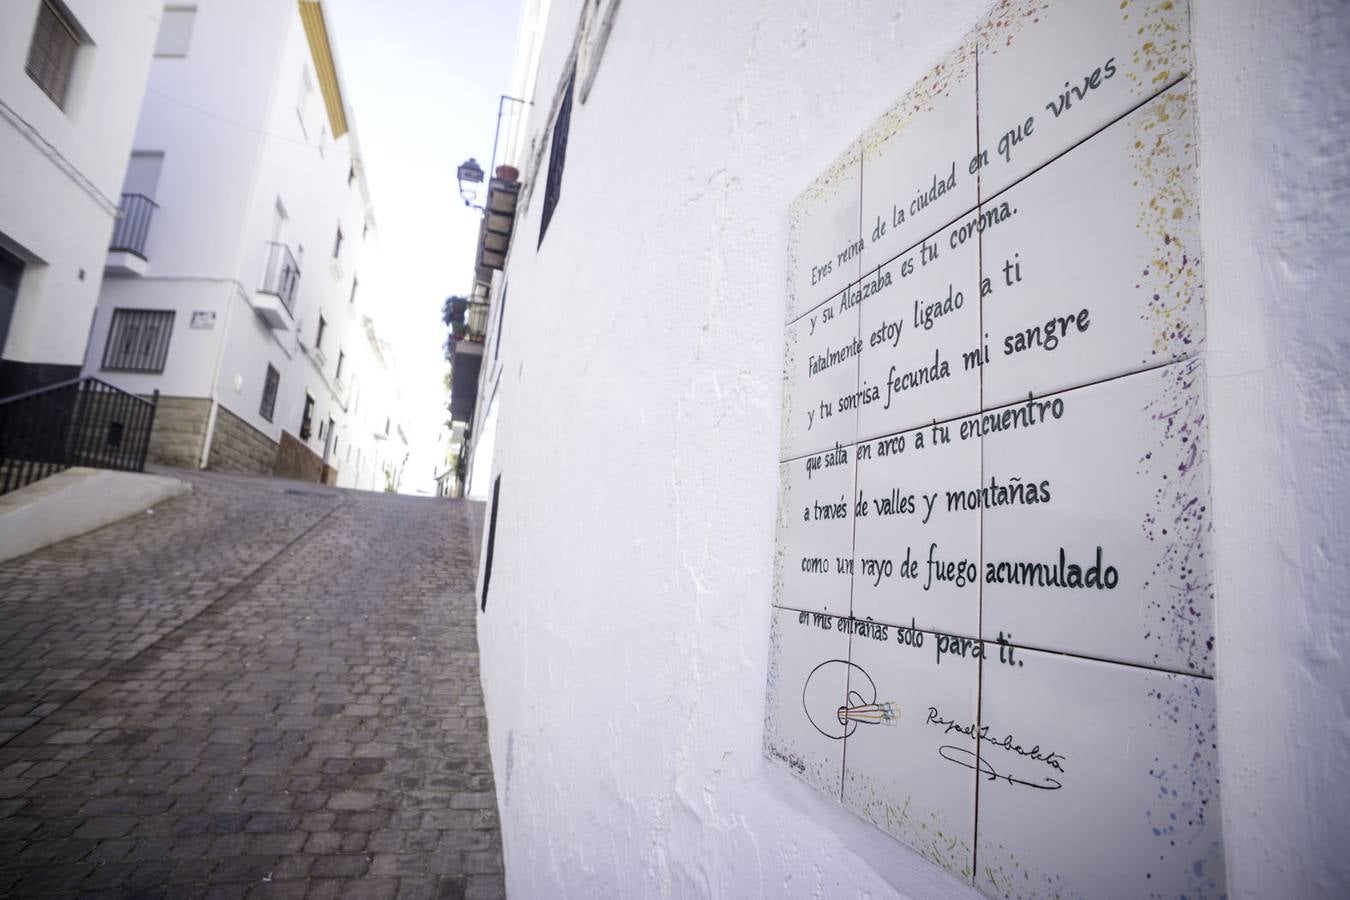 Eres reina de la ciudad en que vives
y su Alcazaba es tu corona.
Fatalmente estoy ligado a ti
y tu sonrisa fecunda mi sangre
que salta en arco a tu encuentro
a través de valles y montañas
como un rayo de fuego acumulado
en mis entrañas solo para ti.
Rafael Zabaleta